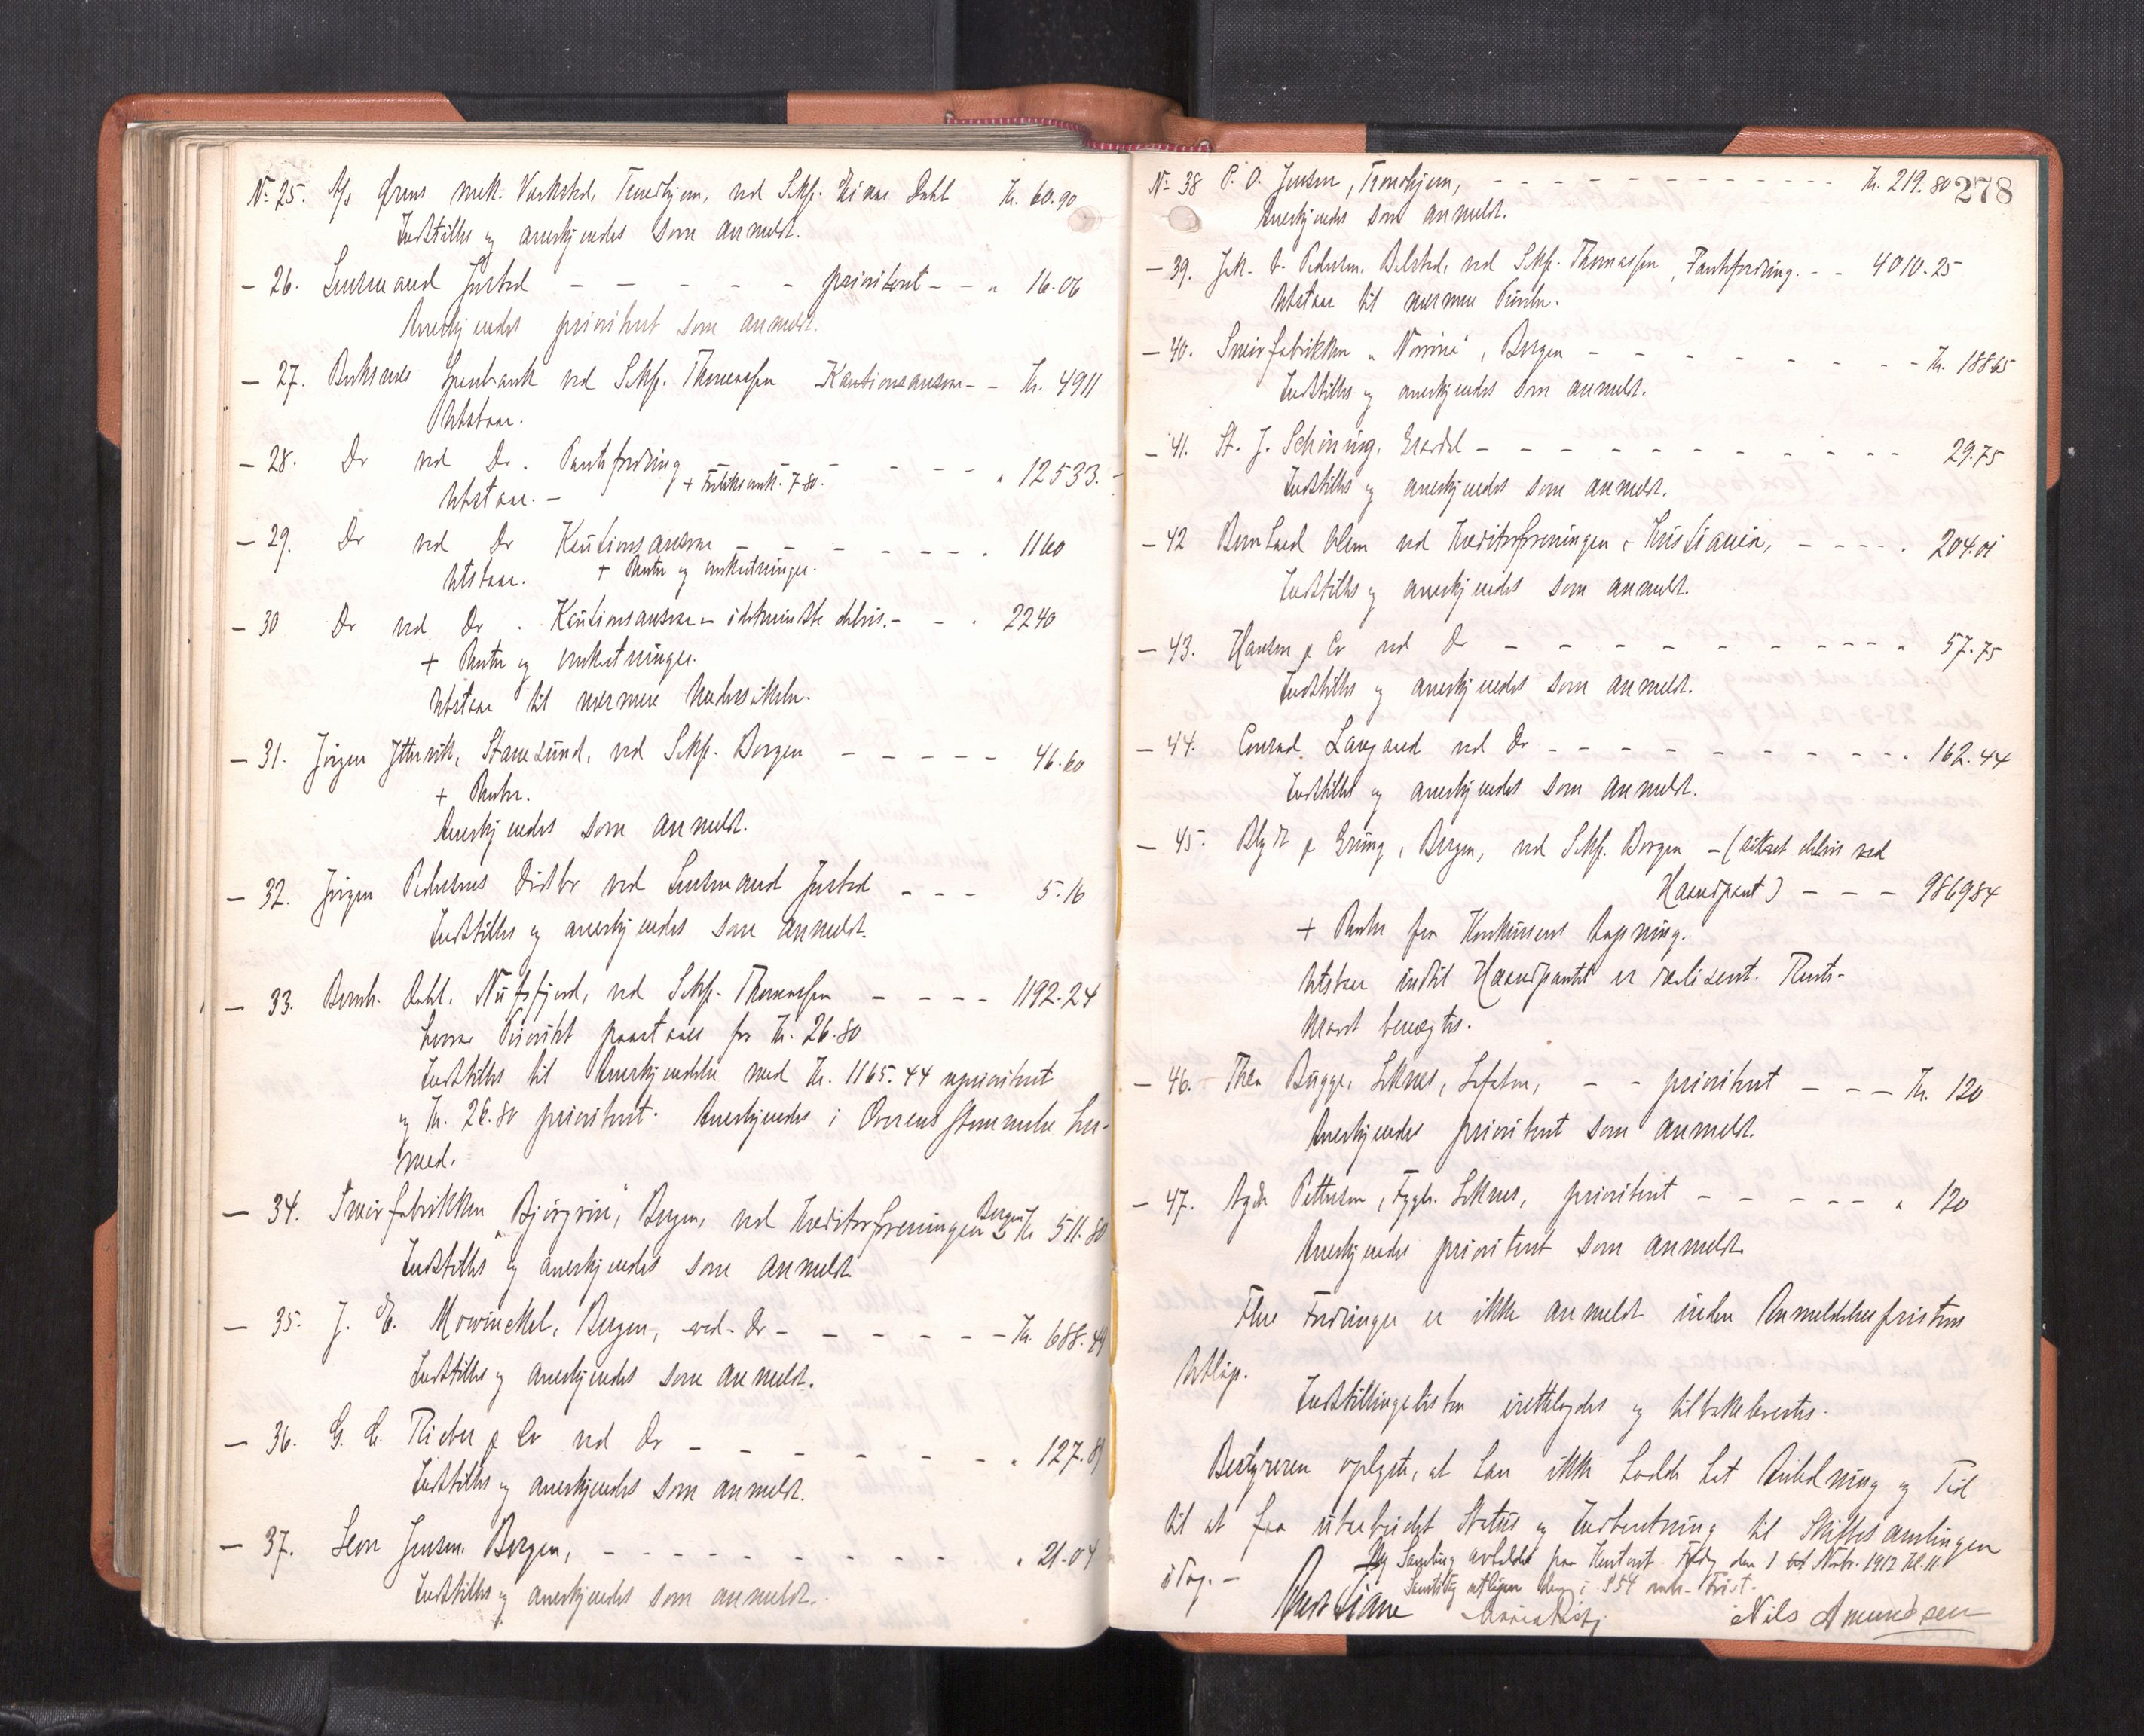 No 25. A/s Ørens mek. Værksted, Trondhjem, ved Skf. Einar Dahl Kr. 60.90
Indstilles og anerkjendes som anmeldt.
- 26. Lensmand Jusnes - - - - - prioritert - - " 16.06
Anerkjendes prioritert som anmeldt.
- 27. Buksnes Sparebank ved Skf. Thomassen Kautionsansvar - - Kr. 4911
Utstaar.
- 28. Do ved Do. Pantefordring - - - - - " 12533.-
Utstaar. - + 780.
- 29. Do ved Do Kautionsansvar - - - - - - - " 1160
Utstaar. + Renter og omkostninger.
- 30 Do ved Do. Kautionsansvar - idetmindste delvis. - - " 2240
+ Renter og omkostninger.
Utstaar til nærmere Undersøkelse.
- 31. Jørgen Yttervik, Stamsund, ved Skf. Borgen - - - - - 46.60
+ Renter.
Anerkjendes som anmeldt.
- 32. Jørgen Pedersens Dødsbo ved Lensmand - - - 5.16
Indstilles og anerkjendes som anmeldt.
- 33. Bernh. Dahl, Nusfjord, ved Skf. Thomassen - - - - 1192.24
hvorav Prioritet paastaaes for Kr. 26.80
Indstilles til Anerkjendelse med Kr. 1165.44 uprioritert
og Kr. 26.80 prioritert. Anerkjendes i Overensstemmelse her-
med.
- 34. Smørfabrikken "Bjørgvin", Bergen, ved Kreditorforeningen Bergen Kr 511.80
Indstilles og anerkjendes som anmeldt
- 35. J. E. Mowinckel, Bergen, ved Do - - - - - - Kr. 688.49
Indstilles og anerkjendes som anmeldt.
- 36. G. C. Rieber & Co ved Do - - - - - - - " 127.89
Indstilles og anerkjendes som anmeldt.
- 37. Jensen, Bergen, - - - - - - - - - " 21.04
Indstilles og anerkjendes som anmeldt.
278
No 38 P. O. Jensen, Trondhjem, - - - - - - - - - - - - Kr. 219.80
Anerkjendes som anmeldt.
- 39. Pedersen, ved Skf. Thomassen, Pantefordring. - - 4010.25
Utstaar til nærmere
- 40. Smørfabrikken "Norrøna", Bergen - - - - - - - - Kr. 188.65
Indstilles og anerkjendes som anmeldt.
- 41. St. J. Schøning, - - - - - - - - - - - 29.75
Indstilles og anerkjendes som anmeldt.
- 42 Bernhard Olsen ved Kreditorforeningen, Kristiania, - - - - " 204.01
Indstilles og anerkjendes som anmeldt.
- 43. Hansen & Co ved Do - - - - - - - - - - - " 57.75
Indstilles og anerkjendes som anmeldt.
- 44. Conrad Langaard ved Do - - - - - - - - - - - " 162.44
Indstilles og anerkjendes som anmeldt.
- 45. Blydt & Grung, Bergen, ved Skf. Borgen - (sikret delvis ved
Haandpant) - - - 9869.84
+ Renter fra Konkursens Aapning.
Utstaar indtil Haandpantet er realisert. Rente-
kravet benegtes.
- 46. Thea Bugge, Leknes, Lofoten, - - prioritert - - - Kr. 120
Anerkjendes prioritert som anmeldt.
- 47. Pettersen, Leknes, prioritert - - - - - - " 120
Anerkjendes prioritert som anmeldt.
Flere Fordringer er ikke anmeldt inden Anmeldelsesfristens
Utløp.
Indstillingslisten irettelagdes og tilbakeleveres.
Bestyreren oplyste, at han ikke hadde hat Anledning og Tid
til at faa utarbeidet Status og Indberetning til Skiftesamlingen
idag. - Ny Samling avholdes paa Kontoret Fredag den 1 Novbr. 1912 Kl. 11.
Samtidig utløper den i § 54 Frist.
Nils Amundsen